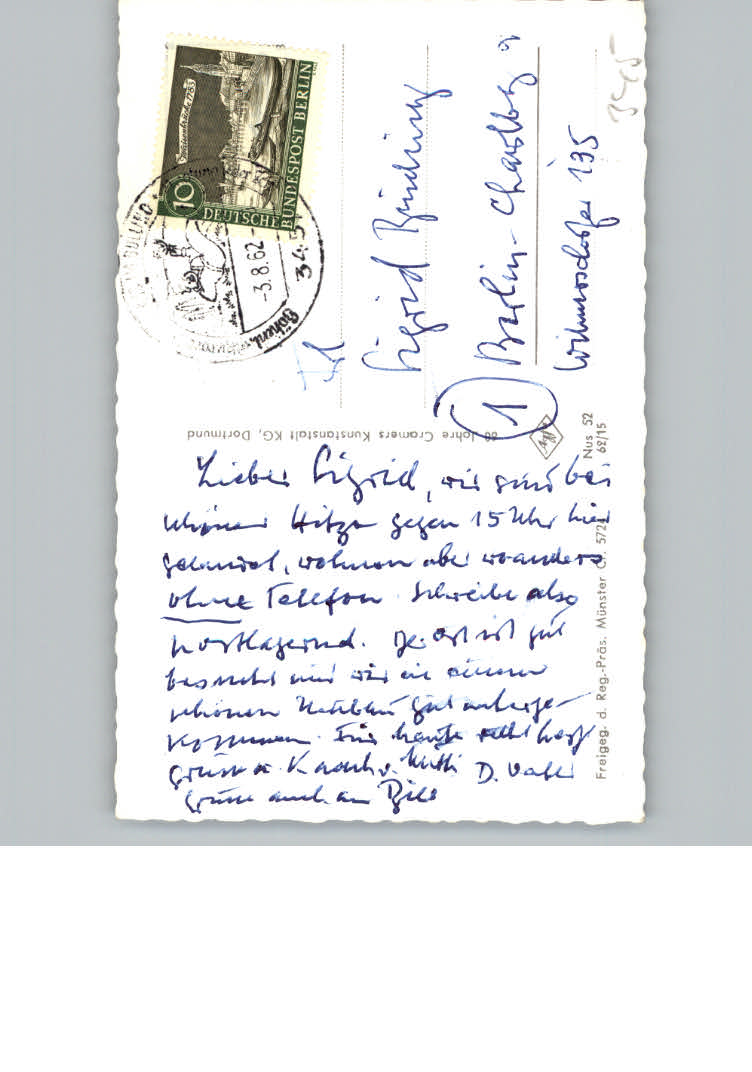 Waisenbrücke 1783
10
DEUTSCHE
BUNDESPOST BERLIN
-3.8.62-
345
3415
Frl
Sigrid Bünding
1 Berlin-Charlbg 9
Wilmersdorfer 135
60 Jahre Cramers Kunstanstalt KG, Dortmund
Agfa
Nus 52
62/15
Freigeg. d. Reg.-Präs. Münster Cr. 5721
Liebe Sigrid, wir sind bei
schöner Hitze gegen 15 Uhr hier
gelandet, wohnen aber woanders
ohne Telefon. Schreibe also
postlagernd. Der Ort ist gut
besucht und wir in einem
schönen Neubau gut unterge-
kommen. Für heute herzl
Grüsse u. v. Mutti D. Vater
Grüsse auch an